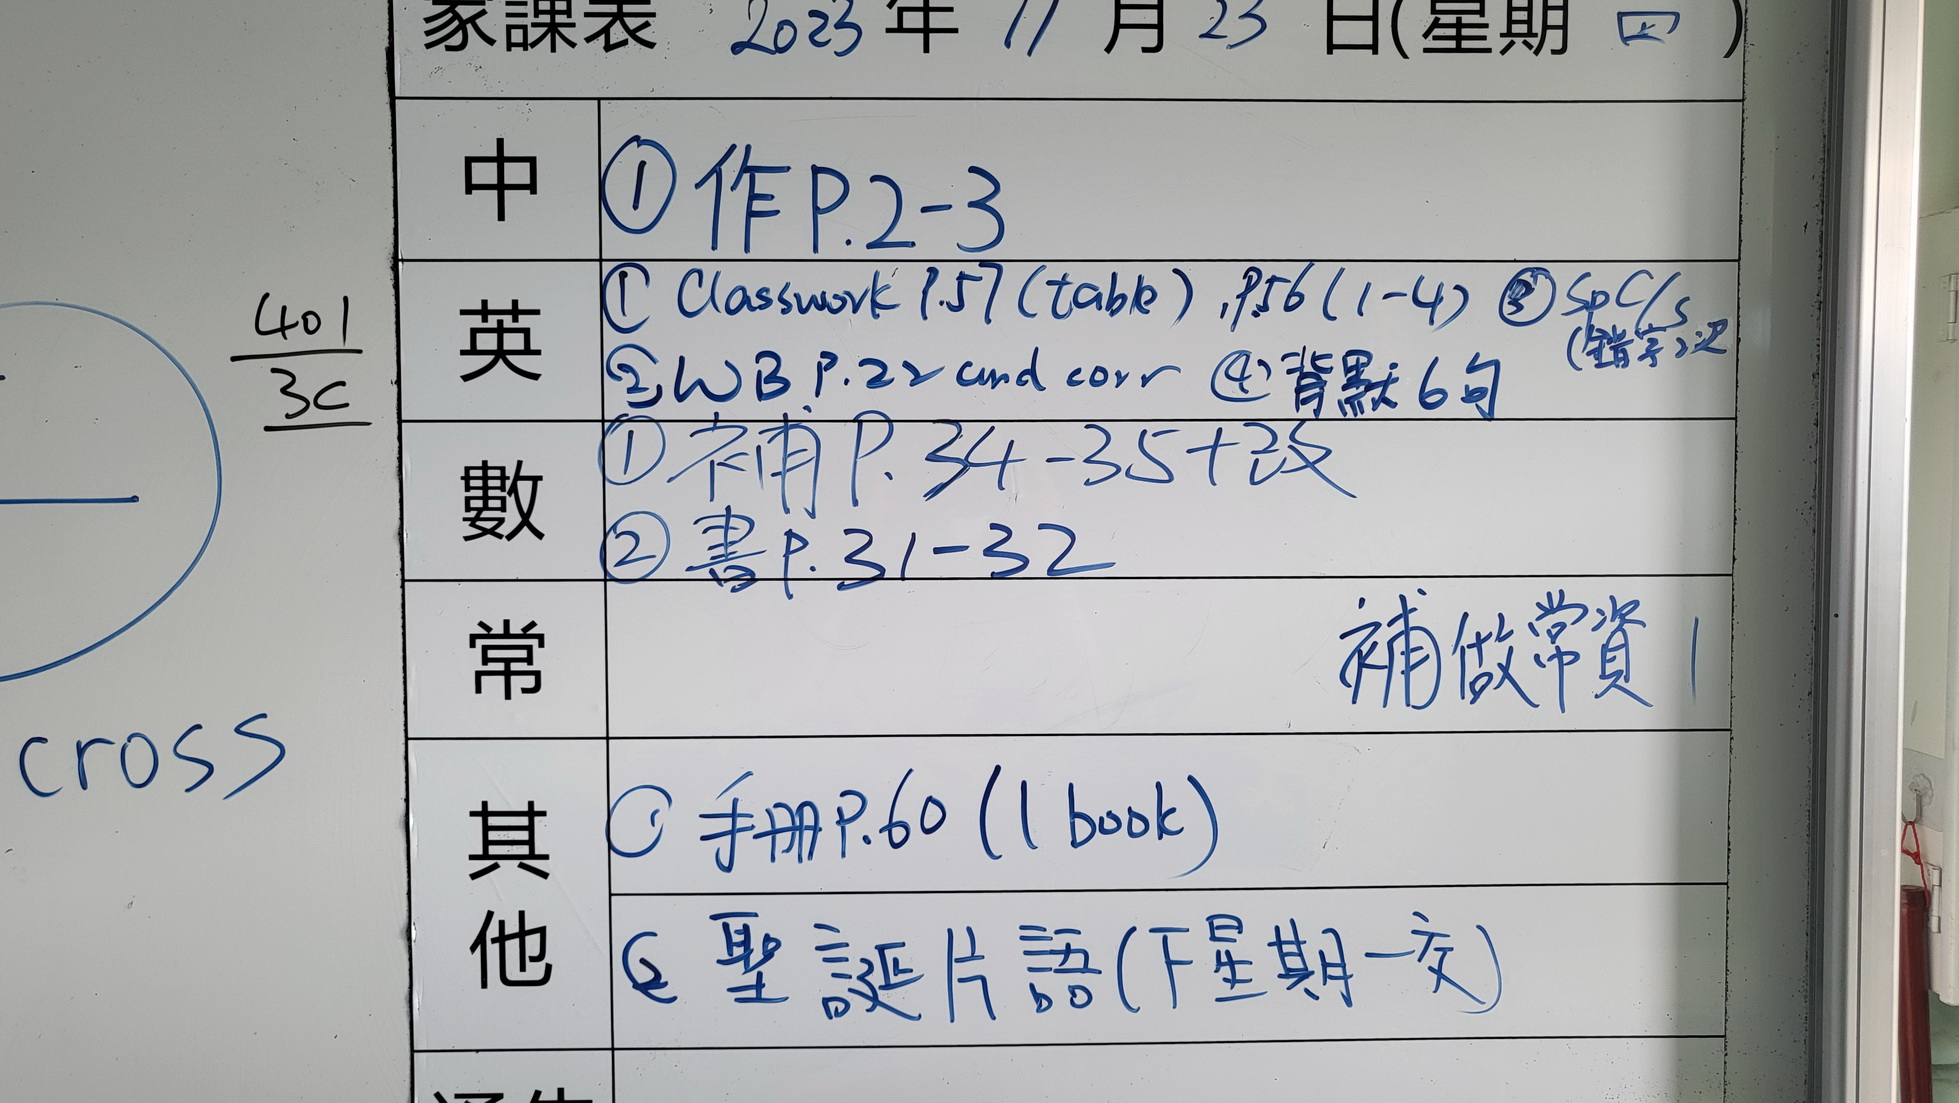 家課表 2023年 11月 23日(星期 四)
中
① 作P.2-3
英
① Classwork P.57 (table), P.56 (1-4) ③ Sp C/S
(錯字2次
② WB P.22 and corr ④ 背默6句
數
① 補P.34-35+改
② 書P.31-32
常
補做常資1
其他
① 手册P.60 (1 book)
② 聖誕片語(下星期一交)
401
3C
cross